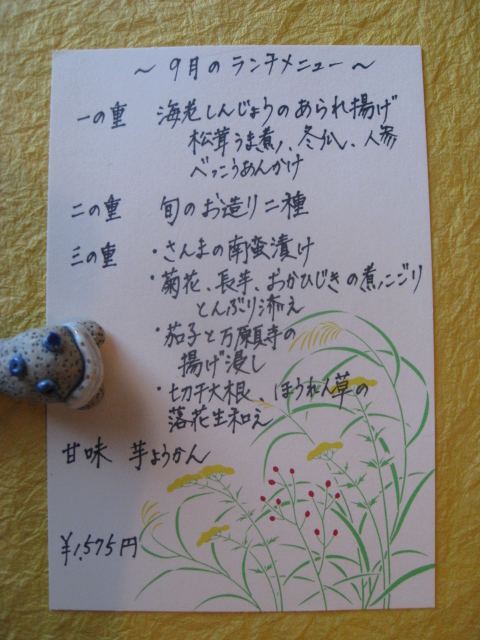 ～9月のランチメニュー～
一の重 海老しんじょうのあられ揚げ
松茸うま煮、冬瓜、人参
べっこうあんかけ
二の重 旬のお造り二種
三の重 ・さんまの南蛮漬け
・菊花、長芋、おかひじきの煮こごり
とんぶり添え
・茄子と万願寺の
揚げ浸し
・切干大根、ほうれん草の
落花生和え
甘味 芋ようかん
¥1,575円